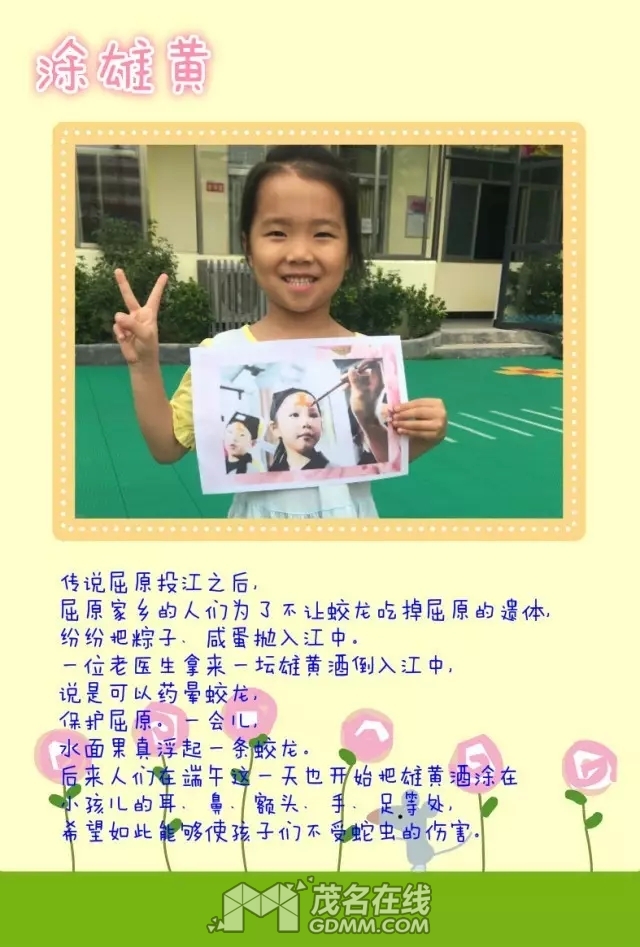 涂雄黄
传说屈原投江之后,
屈原家乡的人们为了不让蛟龙吃掉屈原的遗体,
纷纷把粽子、咸蛋抛入江中。
一位老医生拿来一坛雄黄酒倒入江中,
说是可以药晕蛟龙,
保护屈原。一会儿,
水面果真浮起一条蛟龙。
后来人们在端午这一天也开始把雄黄酒涂在
小孩儿的耳、鼻、额头、手、足等处,
希望如此能够使孩子们不受蛇虫的伤害。
茂名在线
GDMM.COM